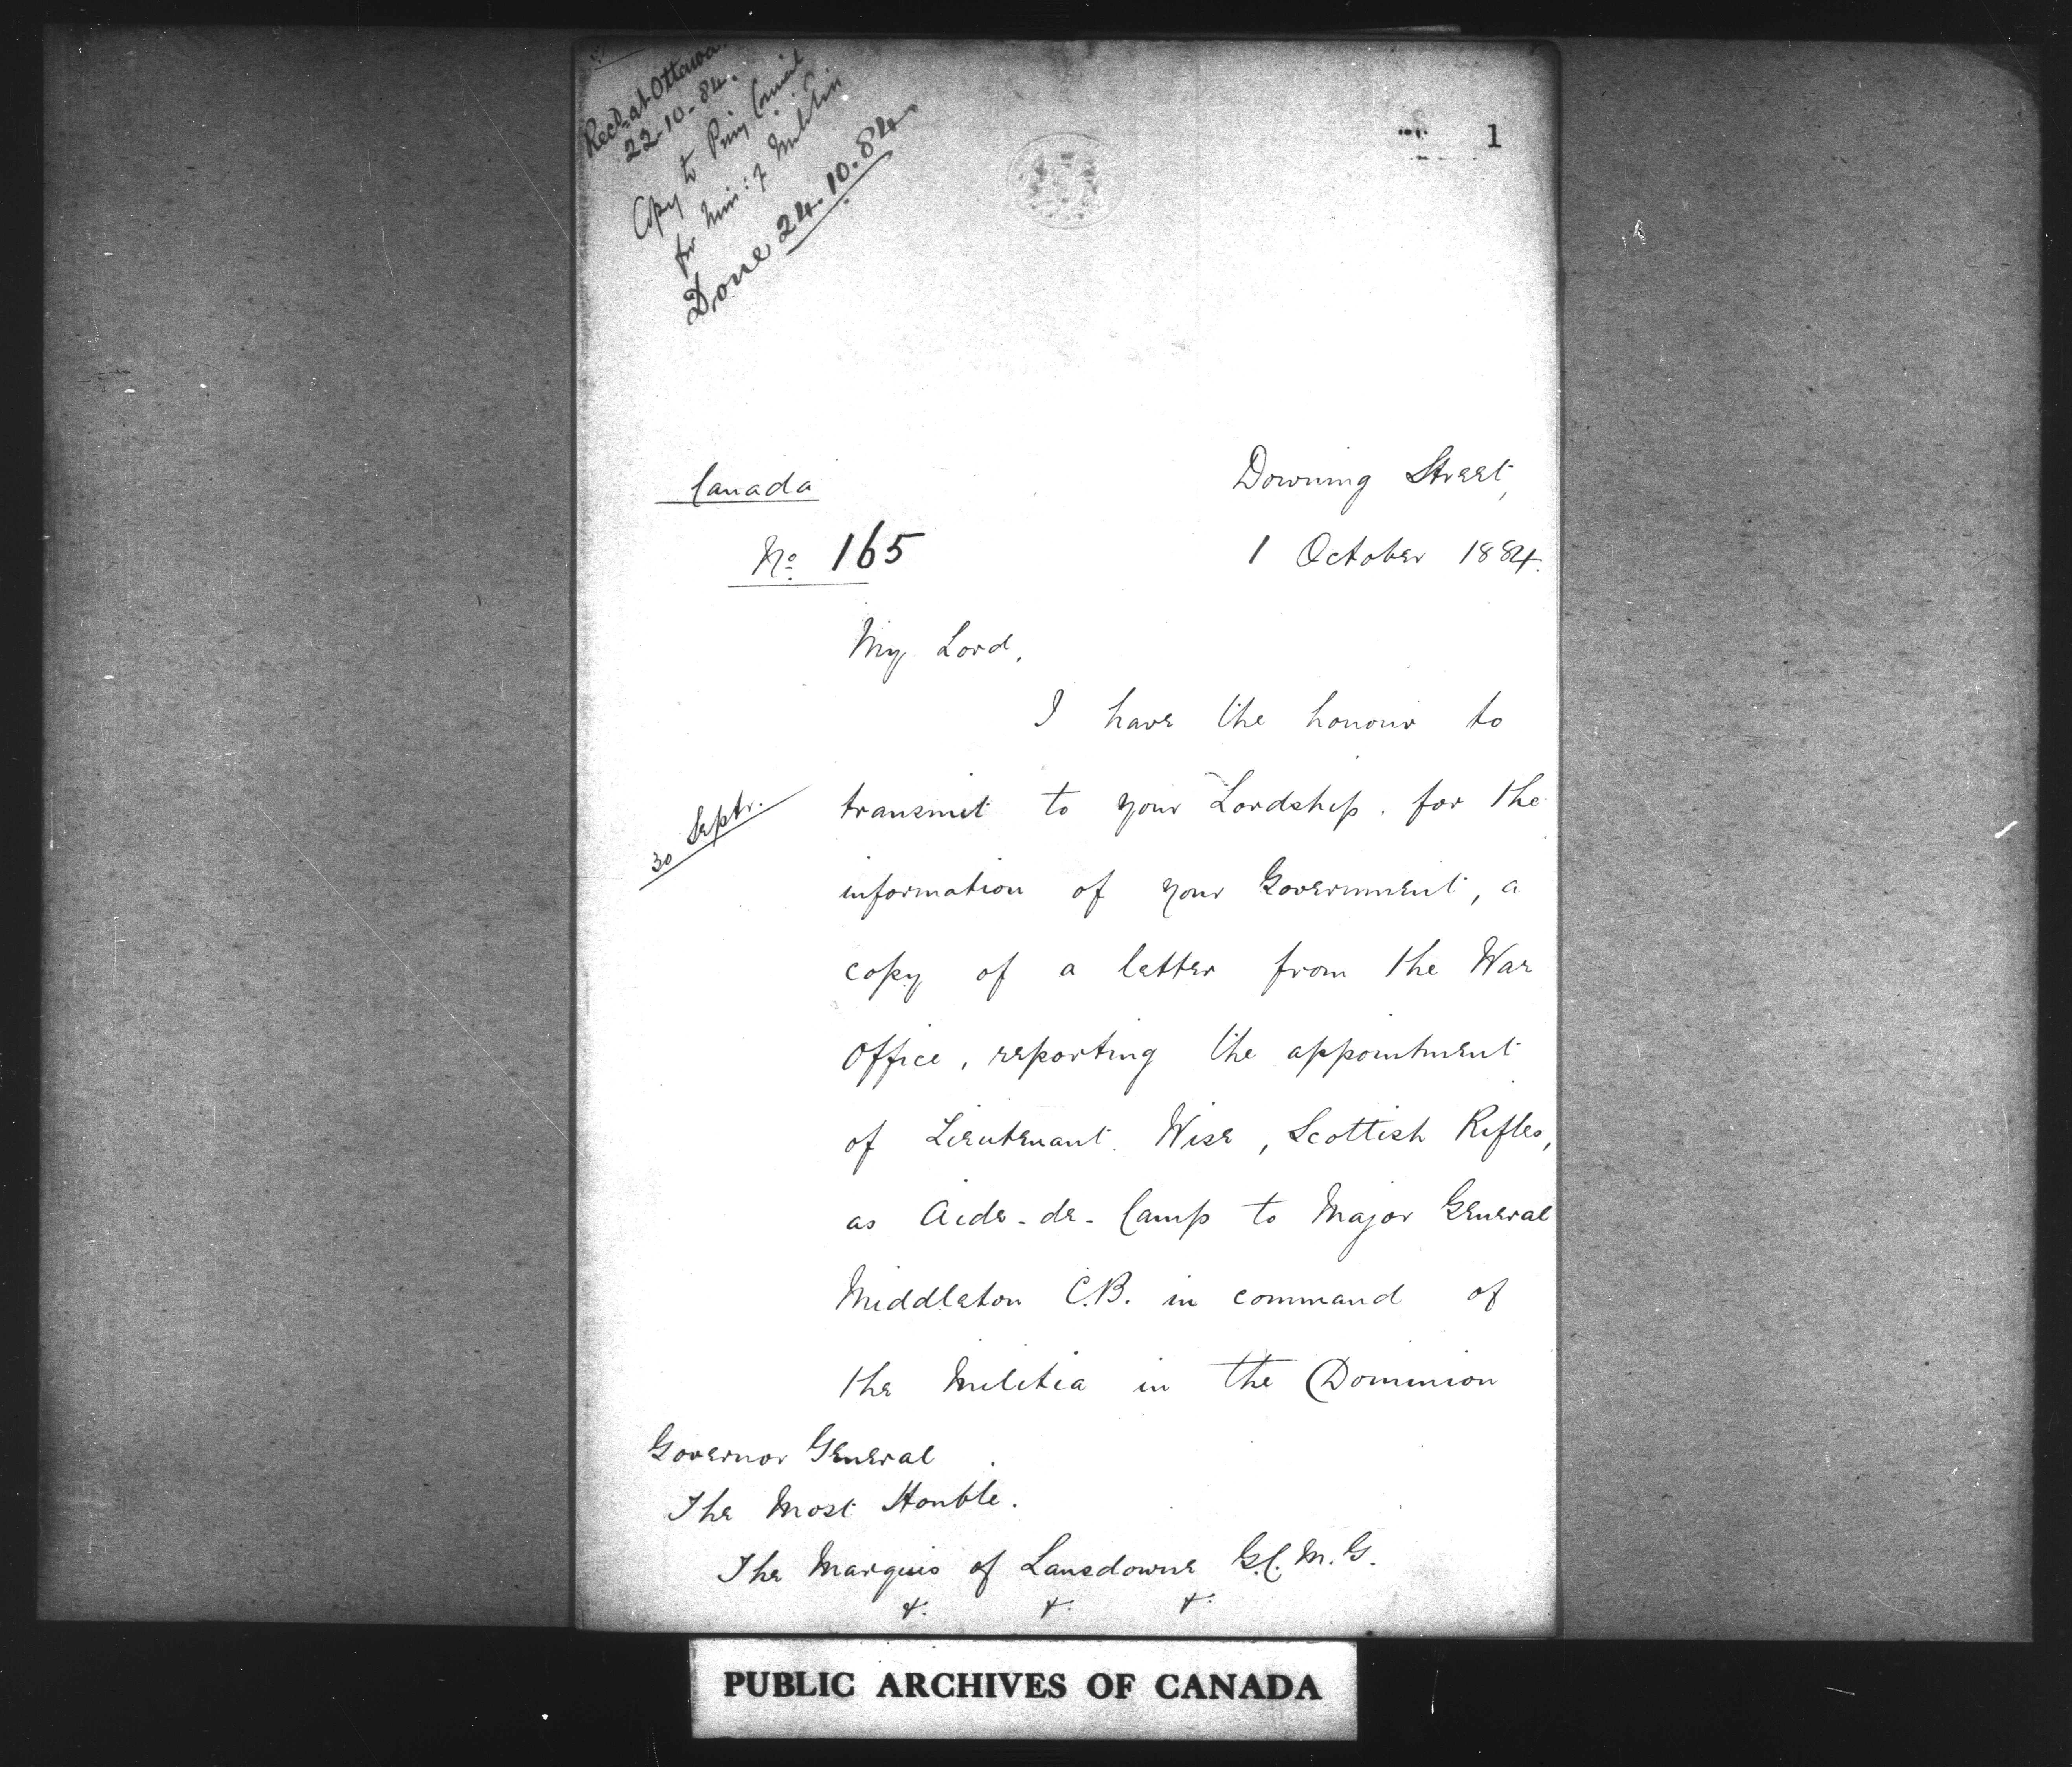 Recd. at Ottawa.
22-10-84.
Copy to Privy Council
for Min: of Militia
Done 24.10.84
1
Canada
No 165
Downing Street,
1 October 1884.
My Lord,
I have the honour to
30 Septr.
transmit to your Lordship, for the
information of your Government, a
copy of a letter from the War
Office, reporting the appointment
of Lieutenant Wise, Scottish Rifles,
as Aide-de-Camp to Major General
Middleton C.B. in command of
the Militia in the Dominion
Governor General
The Most Honble.
The Marquis of Lansdowne G.C.M.G.
&. &. &.
PUBLIC ARCHIVES OF CANADA